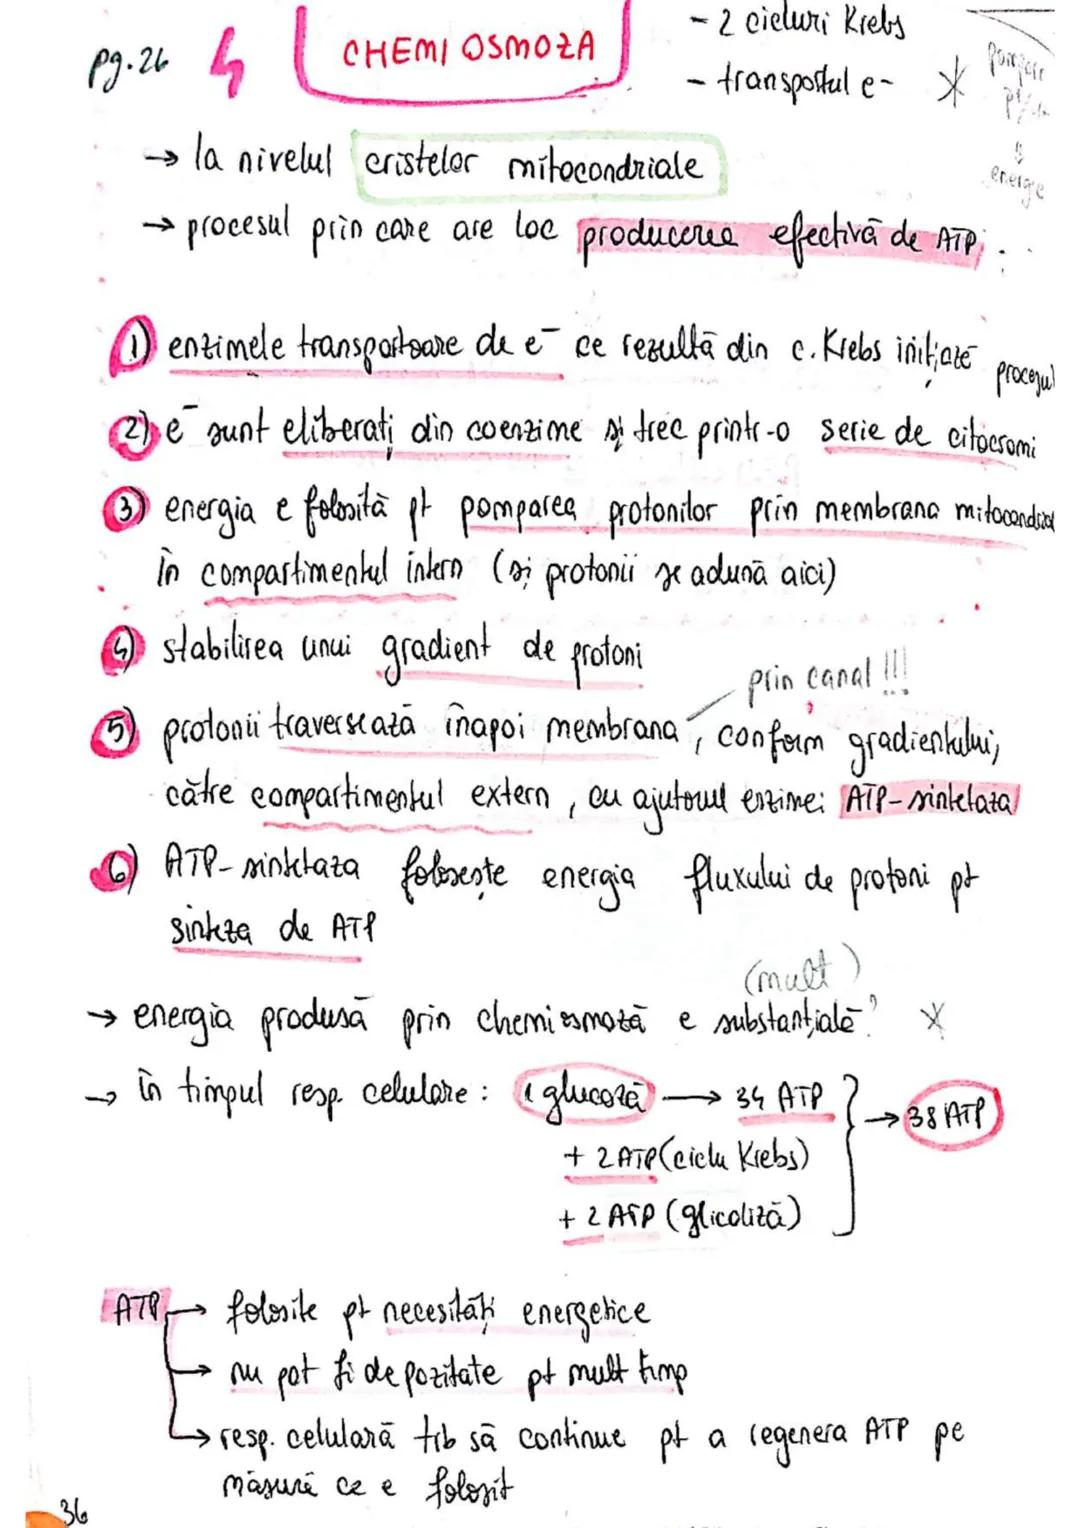 pg. 26 4 CHEMIOSMOZA
- 2 cicluri Krebs
- transportul e- *
pompare
pt
⇓
energie
→ la nivelul cristelor mitocondriale
→ procesul prin care are loc producerea efectivă de ATP
1) enzimele transportoare de e⁻ ce rezultă din c. Krebs inițiază procesul
2) e⁻ sunt eliberați din coenzime și trec printr-o serie de citocromi
3) energia e folosită pt pomparea protonilor prin membrana mitocondrial
în compartimentul intern (și protonii se adună aici)
4) stabilirea unui gradient de protoni
prin canal !!!
5) protonii traversează înapoi membrana, conform gradientului,
către compartimentul extern, cu ajutorul enzimei ATP-sintetaza
6) ATP-sintetaza folosește energia fluxului de protoni pt
sinteza de ATP
(mult)
→ energia produsă prin chemiosmoză e substanțială? *
→ în timpul resp. celulare: 1 glucoză → 34 ATP } → 38 ATP
+ 2 ATP (ciclu Krebs)
+ 2 ATP (glicoliză)
ATP → folosite pt necesități energetice
→ nu pot fi depozitate pt mult timp
→ resp. celulară trb să continue pt a regenera ATP pe
măsură ce e folosit
36